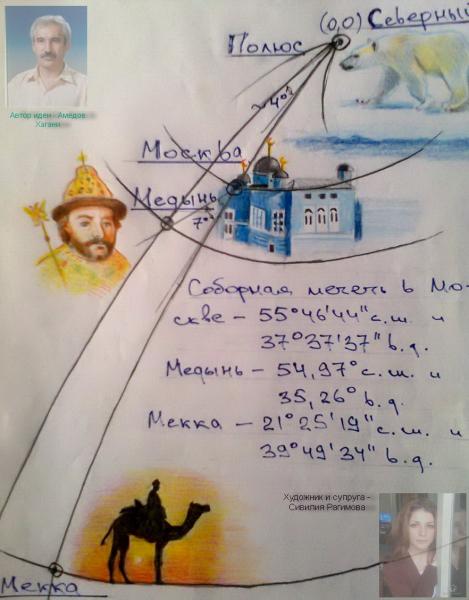 (0,0) Северный
Полюс
Автор идеи - Амедов
Хагани
~40°
Москва
Медынь
7°
Соборная мечеть в Мо-
скве - 55°46'44" с.ш. и
37°37'37" в.д.
Медынь - 54,97° с.ш. и
35,26° в.д.
Мекка - 21°25'19" с.ш. и
39°49'34" в.д.
Художник и супруга -
Сивилия Рагимова
Мекка